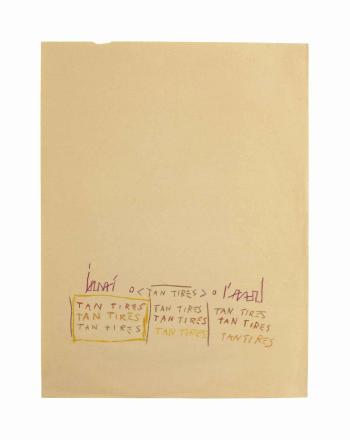 o < TAN TIRES > o
TAN TIRES TAN TIRES TAN TIRES
TAN TIRES TAN TIRES TAN TIRES
TAN TIRES TAN TIRES TANTIRES